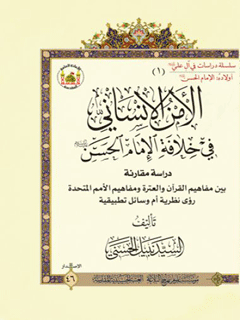 سلسلة دراسات في آل علي
أولاده: الإمام الحسن
(١)
الأمن الإنساني
في خلافة الإمام الحسن
دراسة مقارنة
بين مفاهيم القرآن والعترة ومفاهيم الأمم المتحدة
رؤى نظرية أم وسائل تطبيقية
تأليف
السيد نبيل الحسني
الإصدار
٤٦